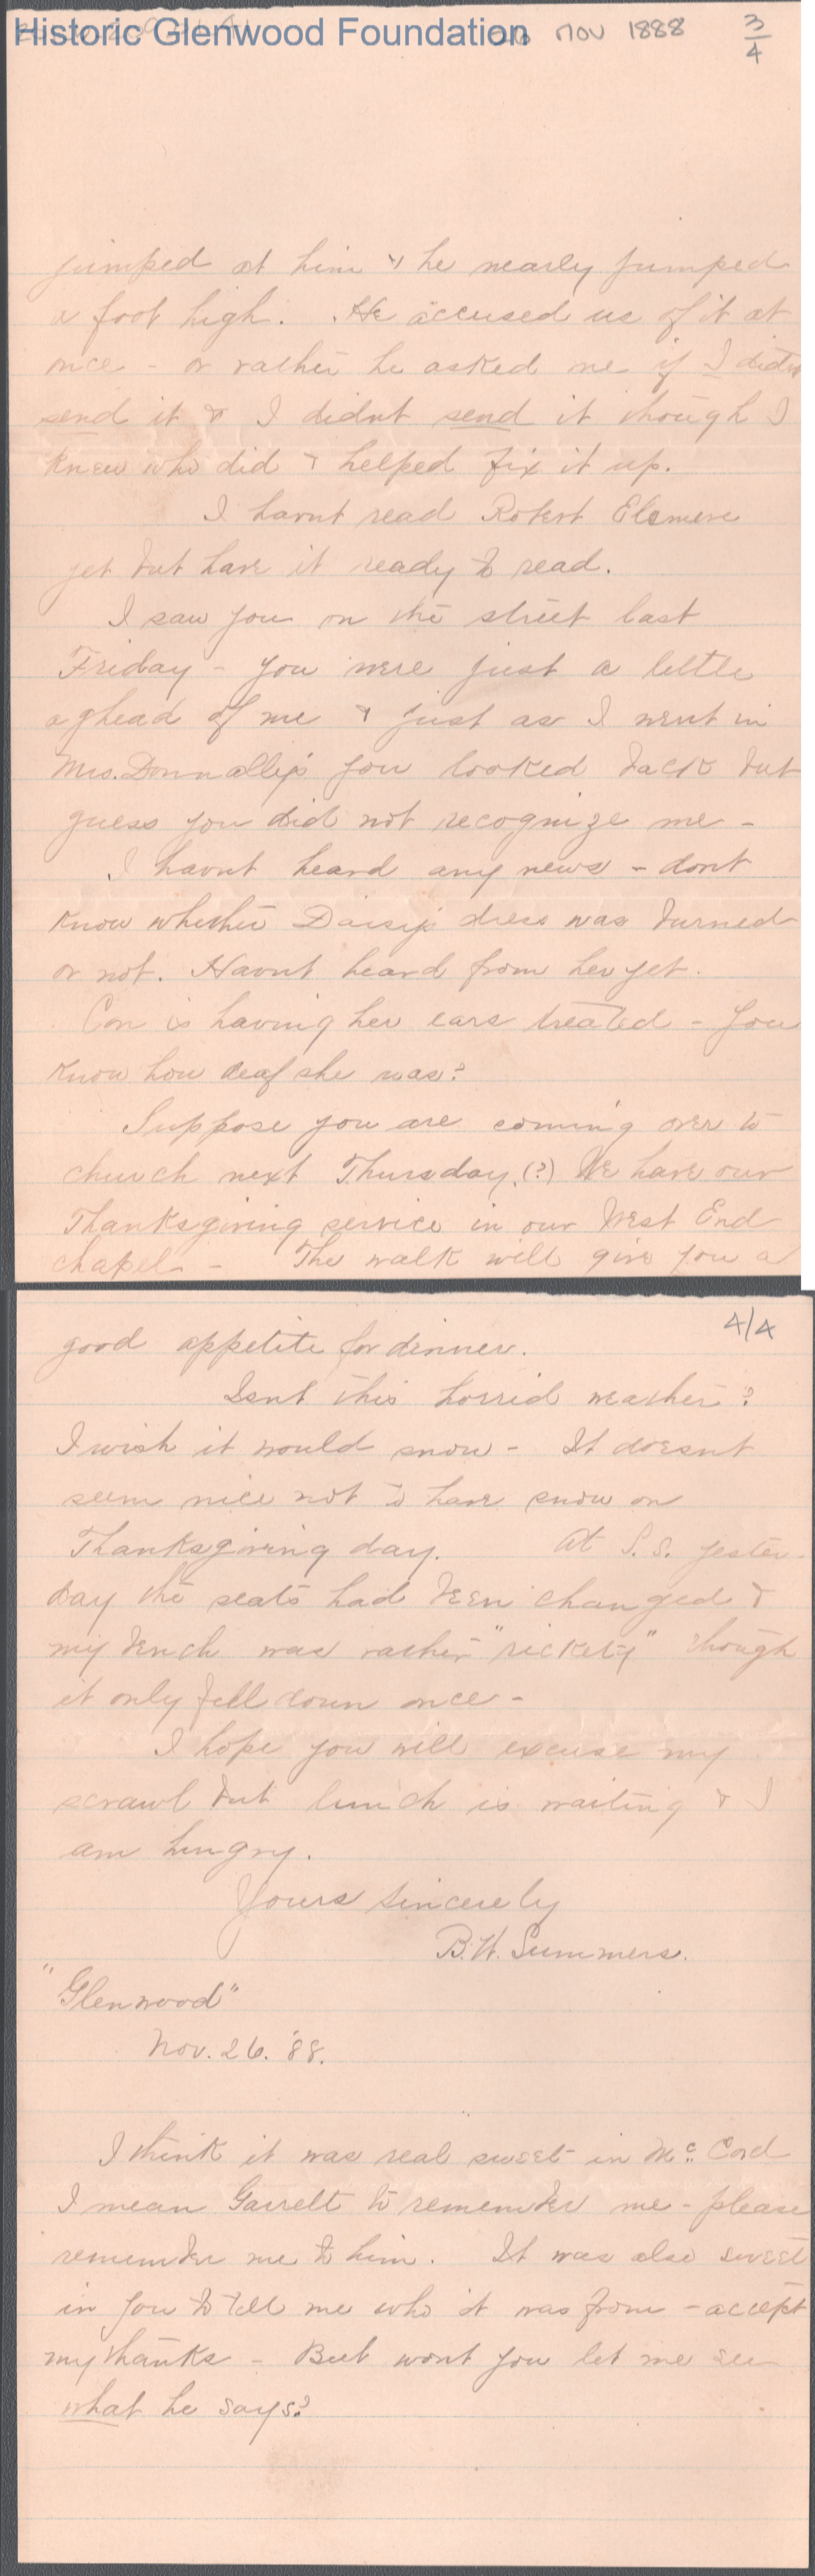 Historic Glenwood Foundation
26 Nov 1888
3/4
jumped at him & he nearly jumped
a foot high. He accused us of it at
once - or rather he asked me if I didnt
send it & I didnt send it though I
knew who did & helped fix it up.
I havnt read Robert Elsmere
yet but have it ready to read.
I saw you on the street last
Friday - you were just a little
aghead of me & just as I went in
Mrs. Donnally's you looked back but
guess you did not recognize me -
I havnt heard any news - dont
know whether Daisy's dress was burned
or not. Havnt heard from her yet.
Con is having her ears treated - you
know how deaf she was?
Suppose you are coming over to
church next Thursday. (?) We have our
Thanksgiving service in our West End
chapel - The walk will give you a
4/4
good appetite for dinner.
Isnt this horrid weather?
I wish it would snow - It doesnt
seem nice not to have snow on
Thanksgiving day. At S.S. yester-
day the seats had been changed &
my bench was rather "rickety" though
it only fell down once -
I hope you will excuse my
scrawl but lunch is waiting & I
am hungry.
Yours sincerely
B.W. Summers.
"Glenwood"
Nov. 26. '88.
I think it was real sweet in Mc. Cord
I mean Garrelt to remember me - please
remember me to him. It was also sweet
in you to tell me who it was from - accept
my thanks - But wont you let me see
what he says?